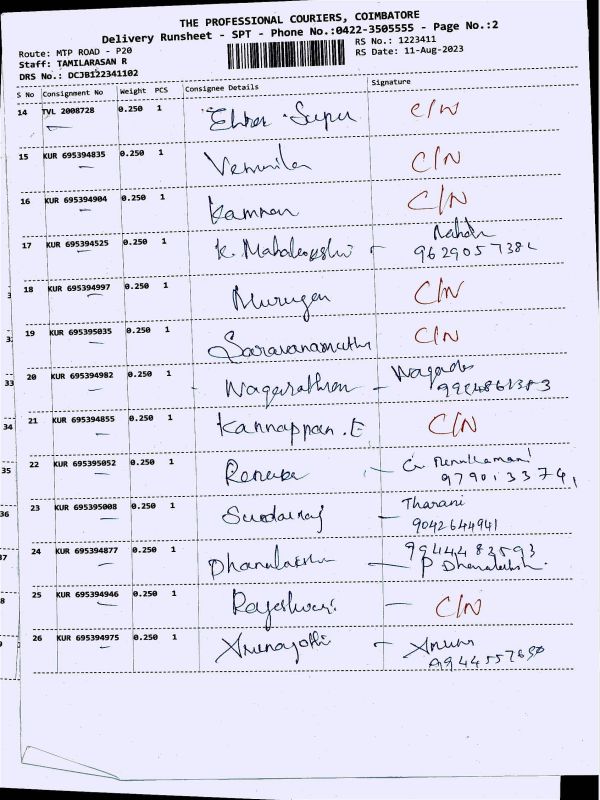 THE PROFESSIONAL COURIERS, COIMBATORE
Delivery Runsheet - SPT - Phone No.:0422-3505555 - Page No.:2
Route: MTP ROAD - P20 RS No.: 1223411
Staff: TAMILARASAN R RS Date: 11-Aug-2023
DRS No.: DCJB122341102
S No Consignment No Weight PCS Consignee Details Signature
14 TVL 2008728 0.250 1 C/N
15 KUR 695394835 0.250 1 C/N
16 KUR 695394904 0.250 1 Kannan C/N
17 KUR 695394525 0.250 1 K. Mahalakshmi
18 KUR 695394997 0.250 1 Murugan C/N
3
19 KUR 695395035 0.250 1 Saravanamuthu C/N
3
20 KUR 695394982 0.250 1 Nagarathnan -
33
21 KUR 694394855 0.250 1 Kannappan .E C/N
34
22 KUR 695395052 0.250 1 Renuka - G
35 9790133741
23 KUR 695395008 0.250 1 Sundarraj - Tharani
36 9042644941
24 KUR 694394877 0.250 1 Dhanalakshmi 9944483593
37 - P Dhanalaksh.
25 KUR 695394946 0.250 1 Rajeshwari - C/N
8
26 KUR 695394975 0.250 1 Arunajothi -